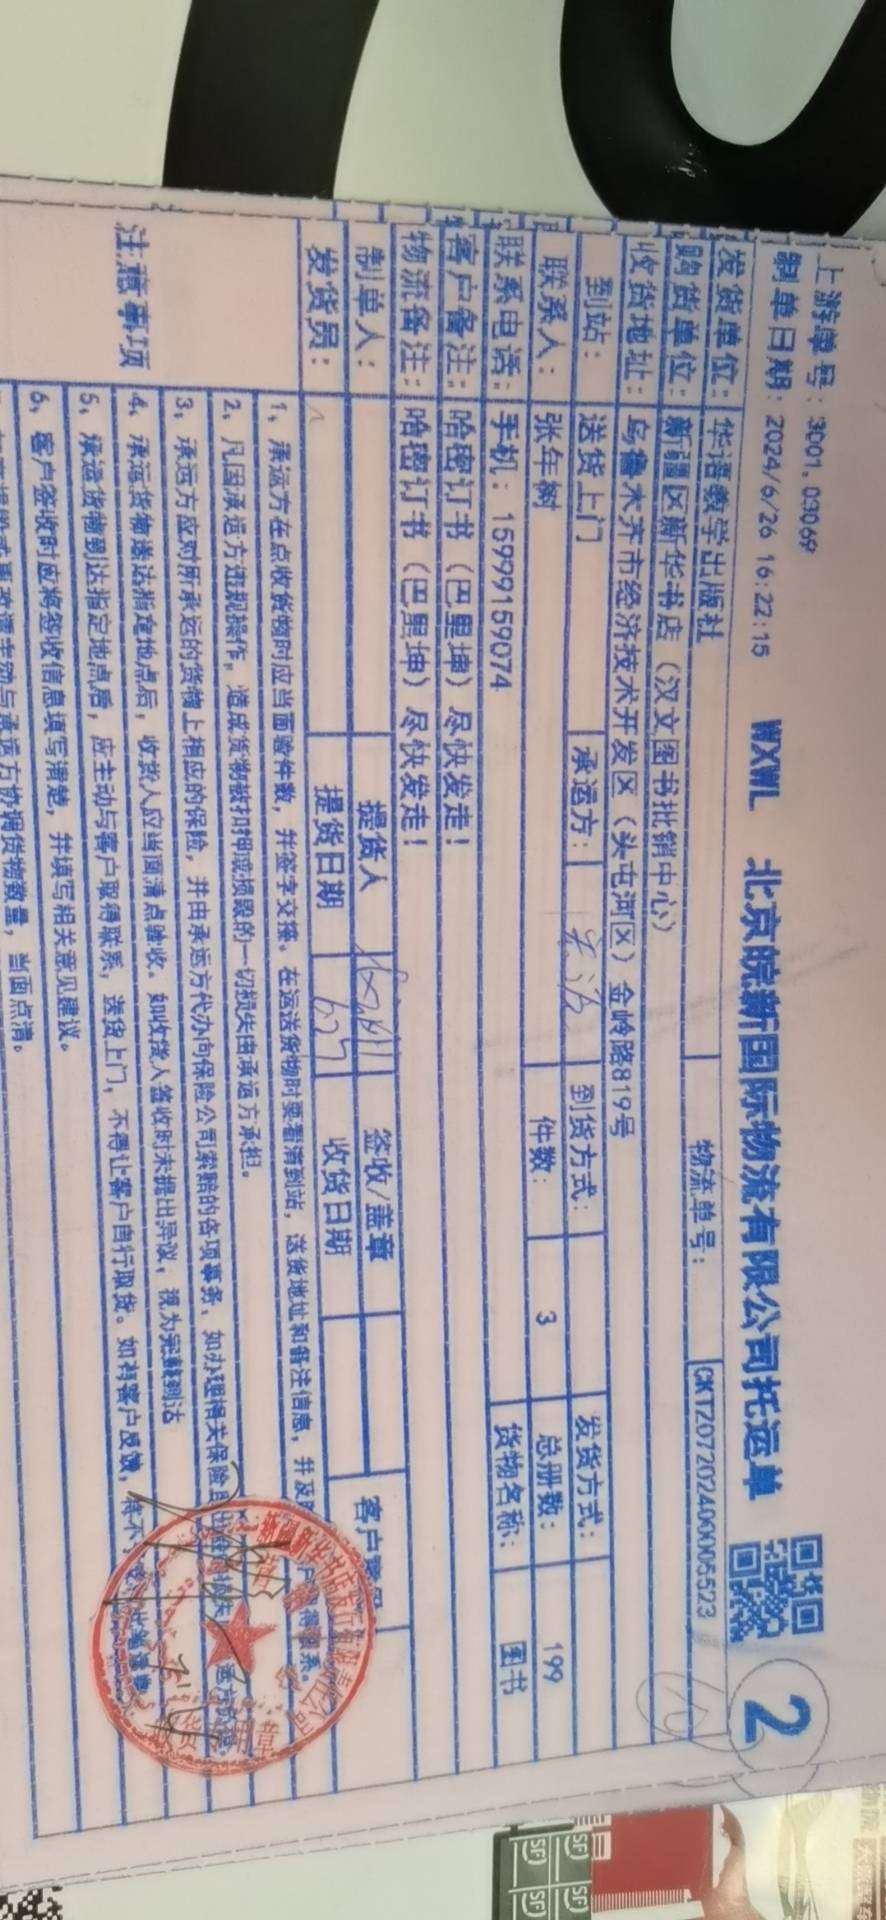 上游单号：3001,03069
制单日期：2024/6/26 16:22:15 WXWL 北京皖新国际物流有限公司托运单 2
发货单位：华语教学出版社 物流单号：CKTZ07202400005523
购货单位：新疆区新华书店（汉文图书批销中心）
收货地址：乌鲁木齐市经济技术开发区（头屯河区）金岭路819号
到站：送货上门 承运方： 到货方式： 发货方式：
联系人：张年树 件数：3 总册数：199
联系电话：手机：15999159074 货物名称：图书
客户备注：哈密订书（巴里坤）尽快发走！
物流备注：哈密订书（巴里坤）尽快发走！
制单人： 提货人 签收/盖章 客户
发货员： 提货日期 收货日期
注意事项
1、承运方在点收货物时应当面验件数，并签字交接。在运送货物时要看清到站，送货地址和备注信息，并及时
2、凡因承运方违规操作，造成货物被扣押或损毁的一切损失由承运方承担。
3、承运方应对所承运的货物上相应的保险，并由承运方代办向保险公司索赔的各项事务，如办理相关保险
4、承运货物送达指定地点后，收货人应当面清点验收。如收货人签收时未提出异议，视为完整到达
5、承运货物到达指定地点后，应主动与客户取得联系，送货上门，不得让客户自行取货。如有客户反馈，
6、客户签收时应将签收信息填写清楚，并填写相关意见建议。
主动与承运方协调货物数量，当面点清。
SF SF
SF SF